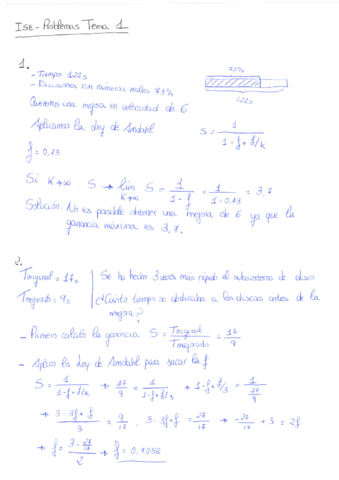 ISE - Problemas Tema 1
1.
- Tiempo 122s
- Divisiones con números reales 73%
73%
122s
Queremos una mejora en velocidad de 6
Aplicamos la Ley de Amdahl
S = 1 / (1 - f + f/k)
f = 0,73
Si K→∞ S → lim K→∞ S = 1 / (1 - f) = 1 / (1 - 0,73) = 3,7
Solución: No es posible obtener una mejora de 6 ya que la
ganancia máxima es 3,7.
2.
Toriginal = 17s
Tmejorado = 9s
Se ha hecho 3 veces más rápido el subsistema de disco
¿Cuánto tiempo se dedicaba a los discos antes de la
mejora?
- Primero calculo la ganancia S = Toriginal / Tmejorado = 17 / 9
- Aplico la Ley de Amdahl para sacar la f
S = 1 / (1 - f + f/k) → 17 / 9 = 1 / (1 - f + f/3) → 1 - f + f/3 = 1 / (17/9)
→ (3 - 3f + f) / 3 = 9 / 17, 3 - 3f + f = 27 / 17 → -27/17 + 3 = 2f
→ f = (3 - 27/17) / 2 → f = 0,7058